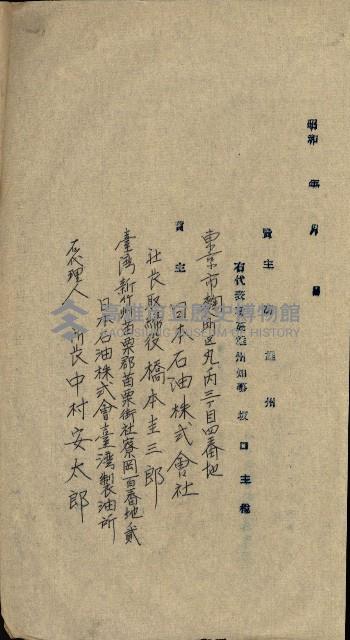 昭和 年 月 日
賣主 高雄州
右代表者高雄州知事 坂口主税
東京市麹町区丸ノ内三丁目四番地
買主 日本石油株式會社
社長取締役 橋本圭三郎
臺湾新竹州苗栗郡苗栗街社寮岡百番地貳
日本石油株式會社臺湾製油所
右代理人 所長中村安太郎
高雄市立歷史博物館
KAOHSIUNG MUSEUM OF HISTORY